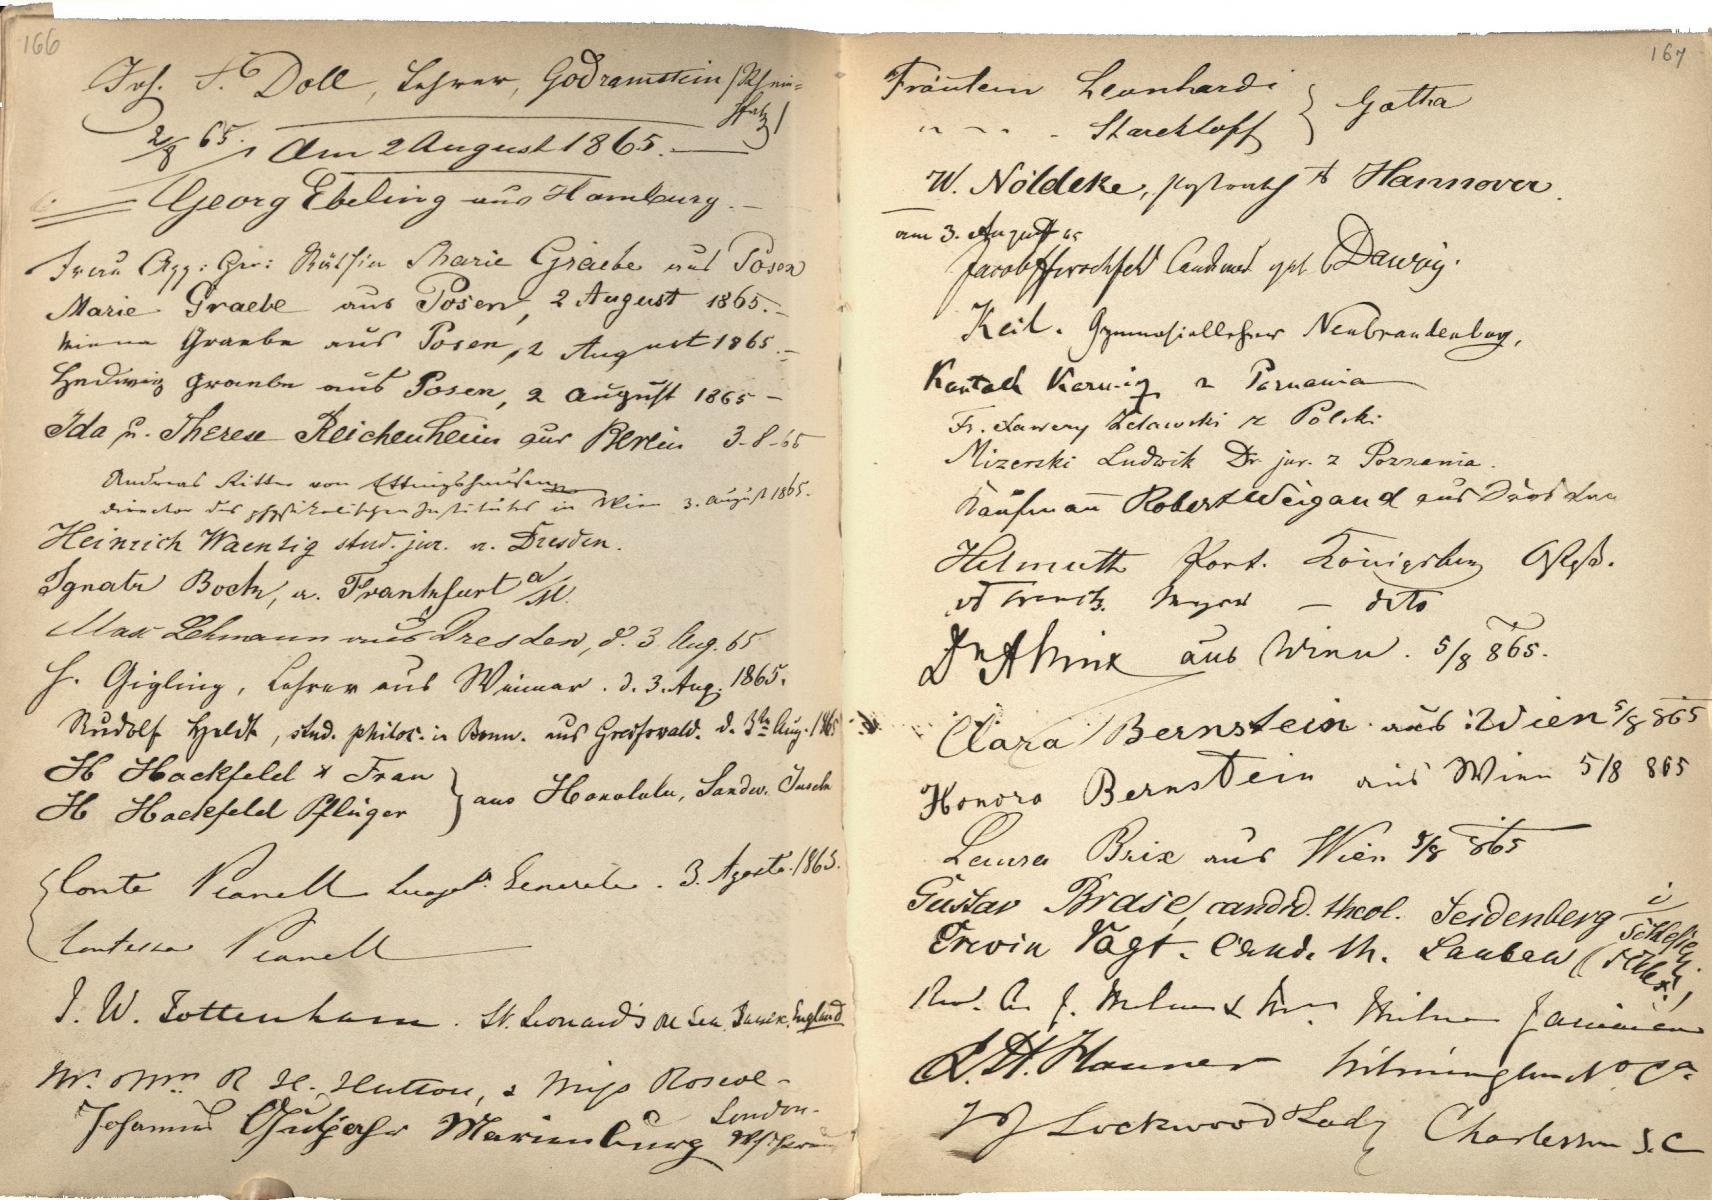 166
Joh. F. Doll, Lehrer, Godramstein (Rhein=
pfalz)
2/8 65.
Am 2 August 1865.
Georg Ebeling aus Hamburg.
Frau App: Ger: Räthin Marie Graebe aus Posen
Marie Graebe aus Posen, 2 August 1865.
Minna Graebe aus Posen, 2 August 1865.
Hedwig Graebe aus Posen, 2 August 1865
Ida u. Therese Reichenheim aus Berlin 3-8-65
Andreas Ritter von Ettingshausen
Director des physikalischen Institutes in Wien 3. August 1865.
Heinrich Waentig stud. jur. a. Dresden.
Ignatz Bock, a. Frankfurt a/M.
Max Lehmann aus Dresden, d. 3 Aug. 65
H. Gigling, Lehrer aus Weimar. d. 3. Aug. 1865.
Rudolf Heldt, stud. philol. in Bonn. aus Greifswald. d. 3te Aug. 1865
H Hackfeld & Frau
H Hackfeld Pflüger
aus Honolulu, Sandw. Inseln
Conte Pianell Luogot. Generale. 3. Agosto. 1865.
Contessa Pianell
J. W. Tottenham. St. Leonard's on Sea, Sussex, England
Mr. & Mrs. R H. Hutton, & Miss Roscoe
London
Johannes Gutjahr Marienburg
167
Fräulein Leonhardi
" " Starckloff
Gotha
W. Nöldeke, Hannover.
am 3. August 65
Jacob Hirschfeld Cand med Danzig.
Keil. Gymnasiallehrer Neubrandenburg,
Kantak z Poznania
Fr. Xawery z Polski
Mizerski Ludwik Dr. jur. z Poznania.
Kaufmann Robert Weigand aus
Helmuth Königsberg
Meyer — dito
Dr A aus Wien. 5/8 865.
Clara Bernstein aus Wien 5/8 865
Honora Bernstein aus Wien 5/8 865
Laura Brix aus Wien 5/8 865
Gustav Brase, candid. theol. Seidenberg i
Schlesien.
Erwin Vogt. Cand. th. Lauban (Schles.)
Rev. J. Milner & Mrs Milner
Wilmington No Ca
Lockwood & Lady Charleston S.C